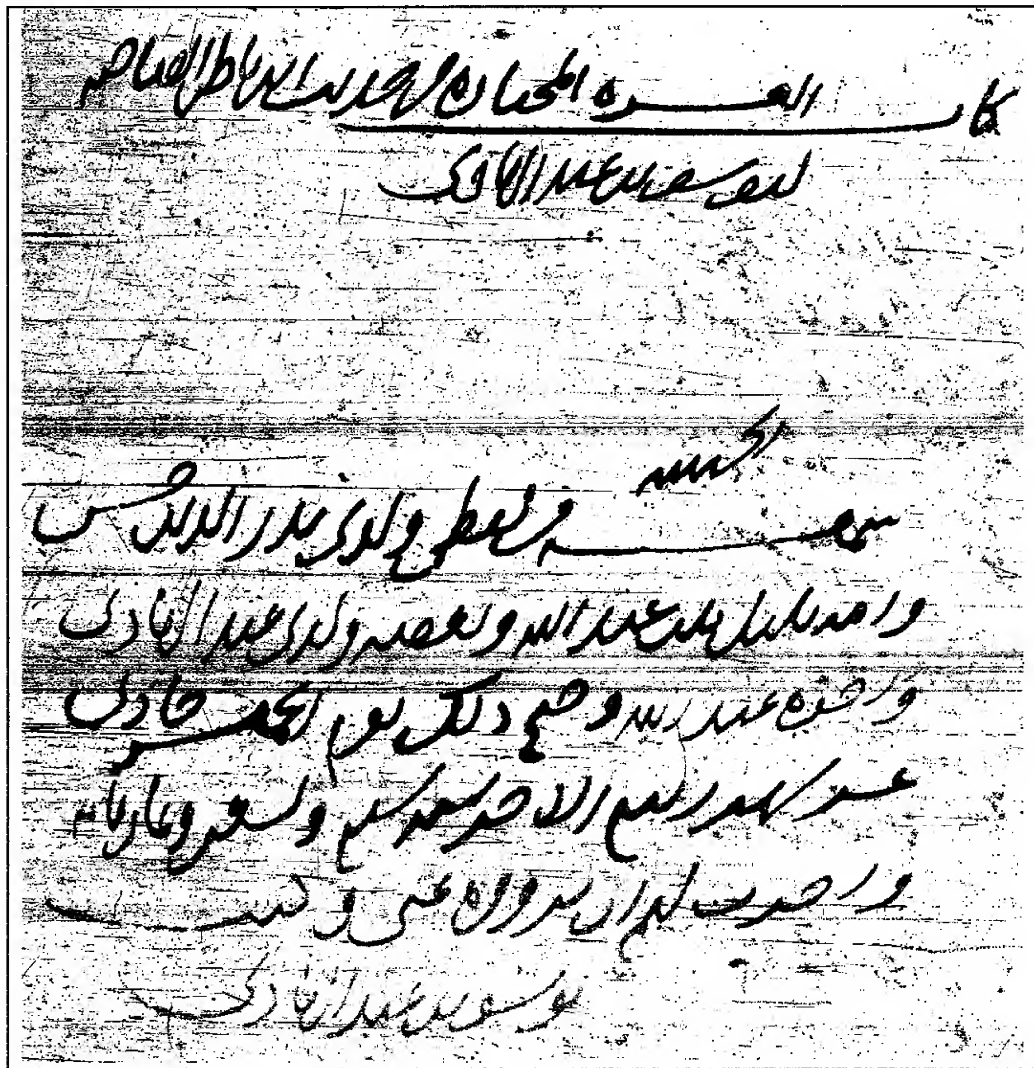 كتاب العشرة المختارة من حديث ابن ناظر الصاحبة
ليوسف بن عبد الهادي
الحمد لله
سمعه من لفظي ولدي بدر الدين حسن
وامه بلبل بنت عبد الله وبعضه ولدي عبد الهادي
واخوه عبد الله وصح ذلك يوم حادي
عشر شهر ربيع الاخر سنة سبع وتسعين وثمانمائة
واجزت لهم ان يرووه عني وكتب
يوسف بن عبد الهادي